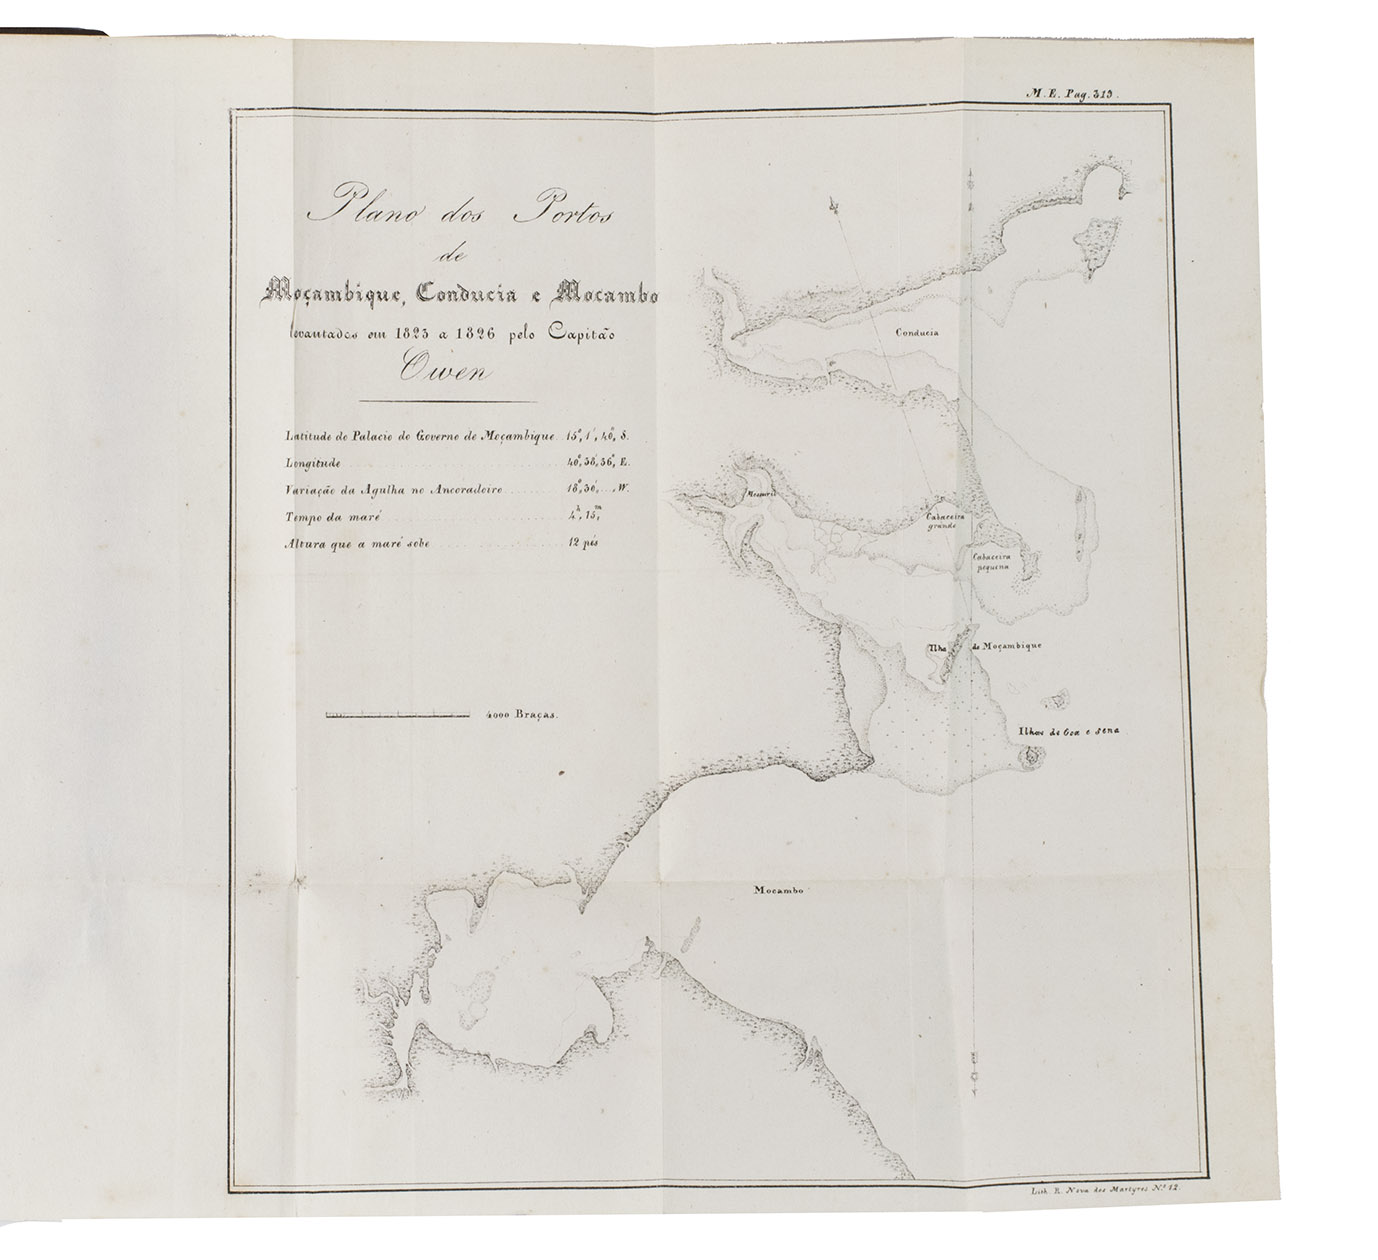 M. E. Pag. 319.
Plano dos Portos
de
Moçambique, Conducia e Mocambo
levantados em 1823 a 1826 pelo Capitão
Owen
Latitude do Palacio do Governo de Moçambique .. 15°, 1', 40", S.
Longitude .......... 40°, 38', 36", E.
Variação da Agulha no Ancoradoiro .......... 18°, 36', .., W.
Tempo da maré .......... 4h, 15,m
Altura que a maré sobe .......... 12 pés
4000 Braças.
Conducia
Mossuril
Cabaceira
grande
Cabaceira
pequena
Ilha de Moçambique
Ilhas de Goa e Sena
Mocambo
Lith. R. Nova dos Martyres Nº. 12.